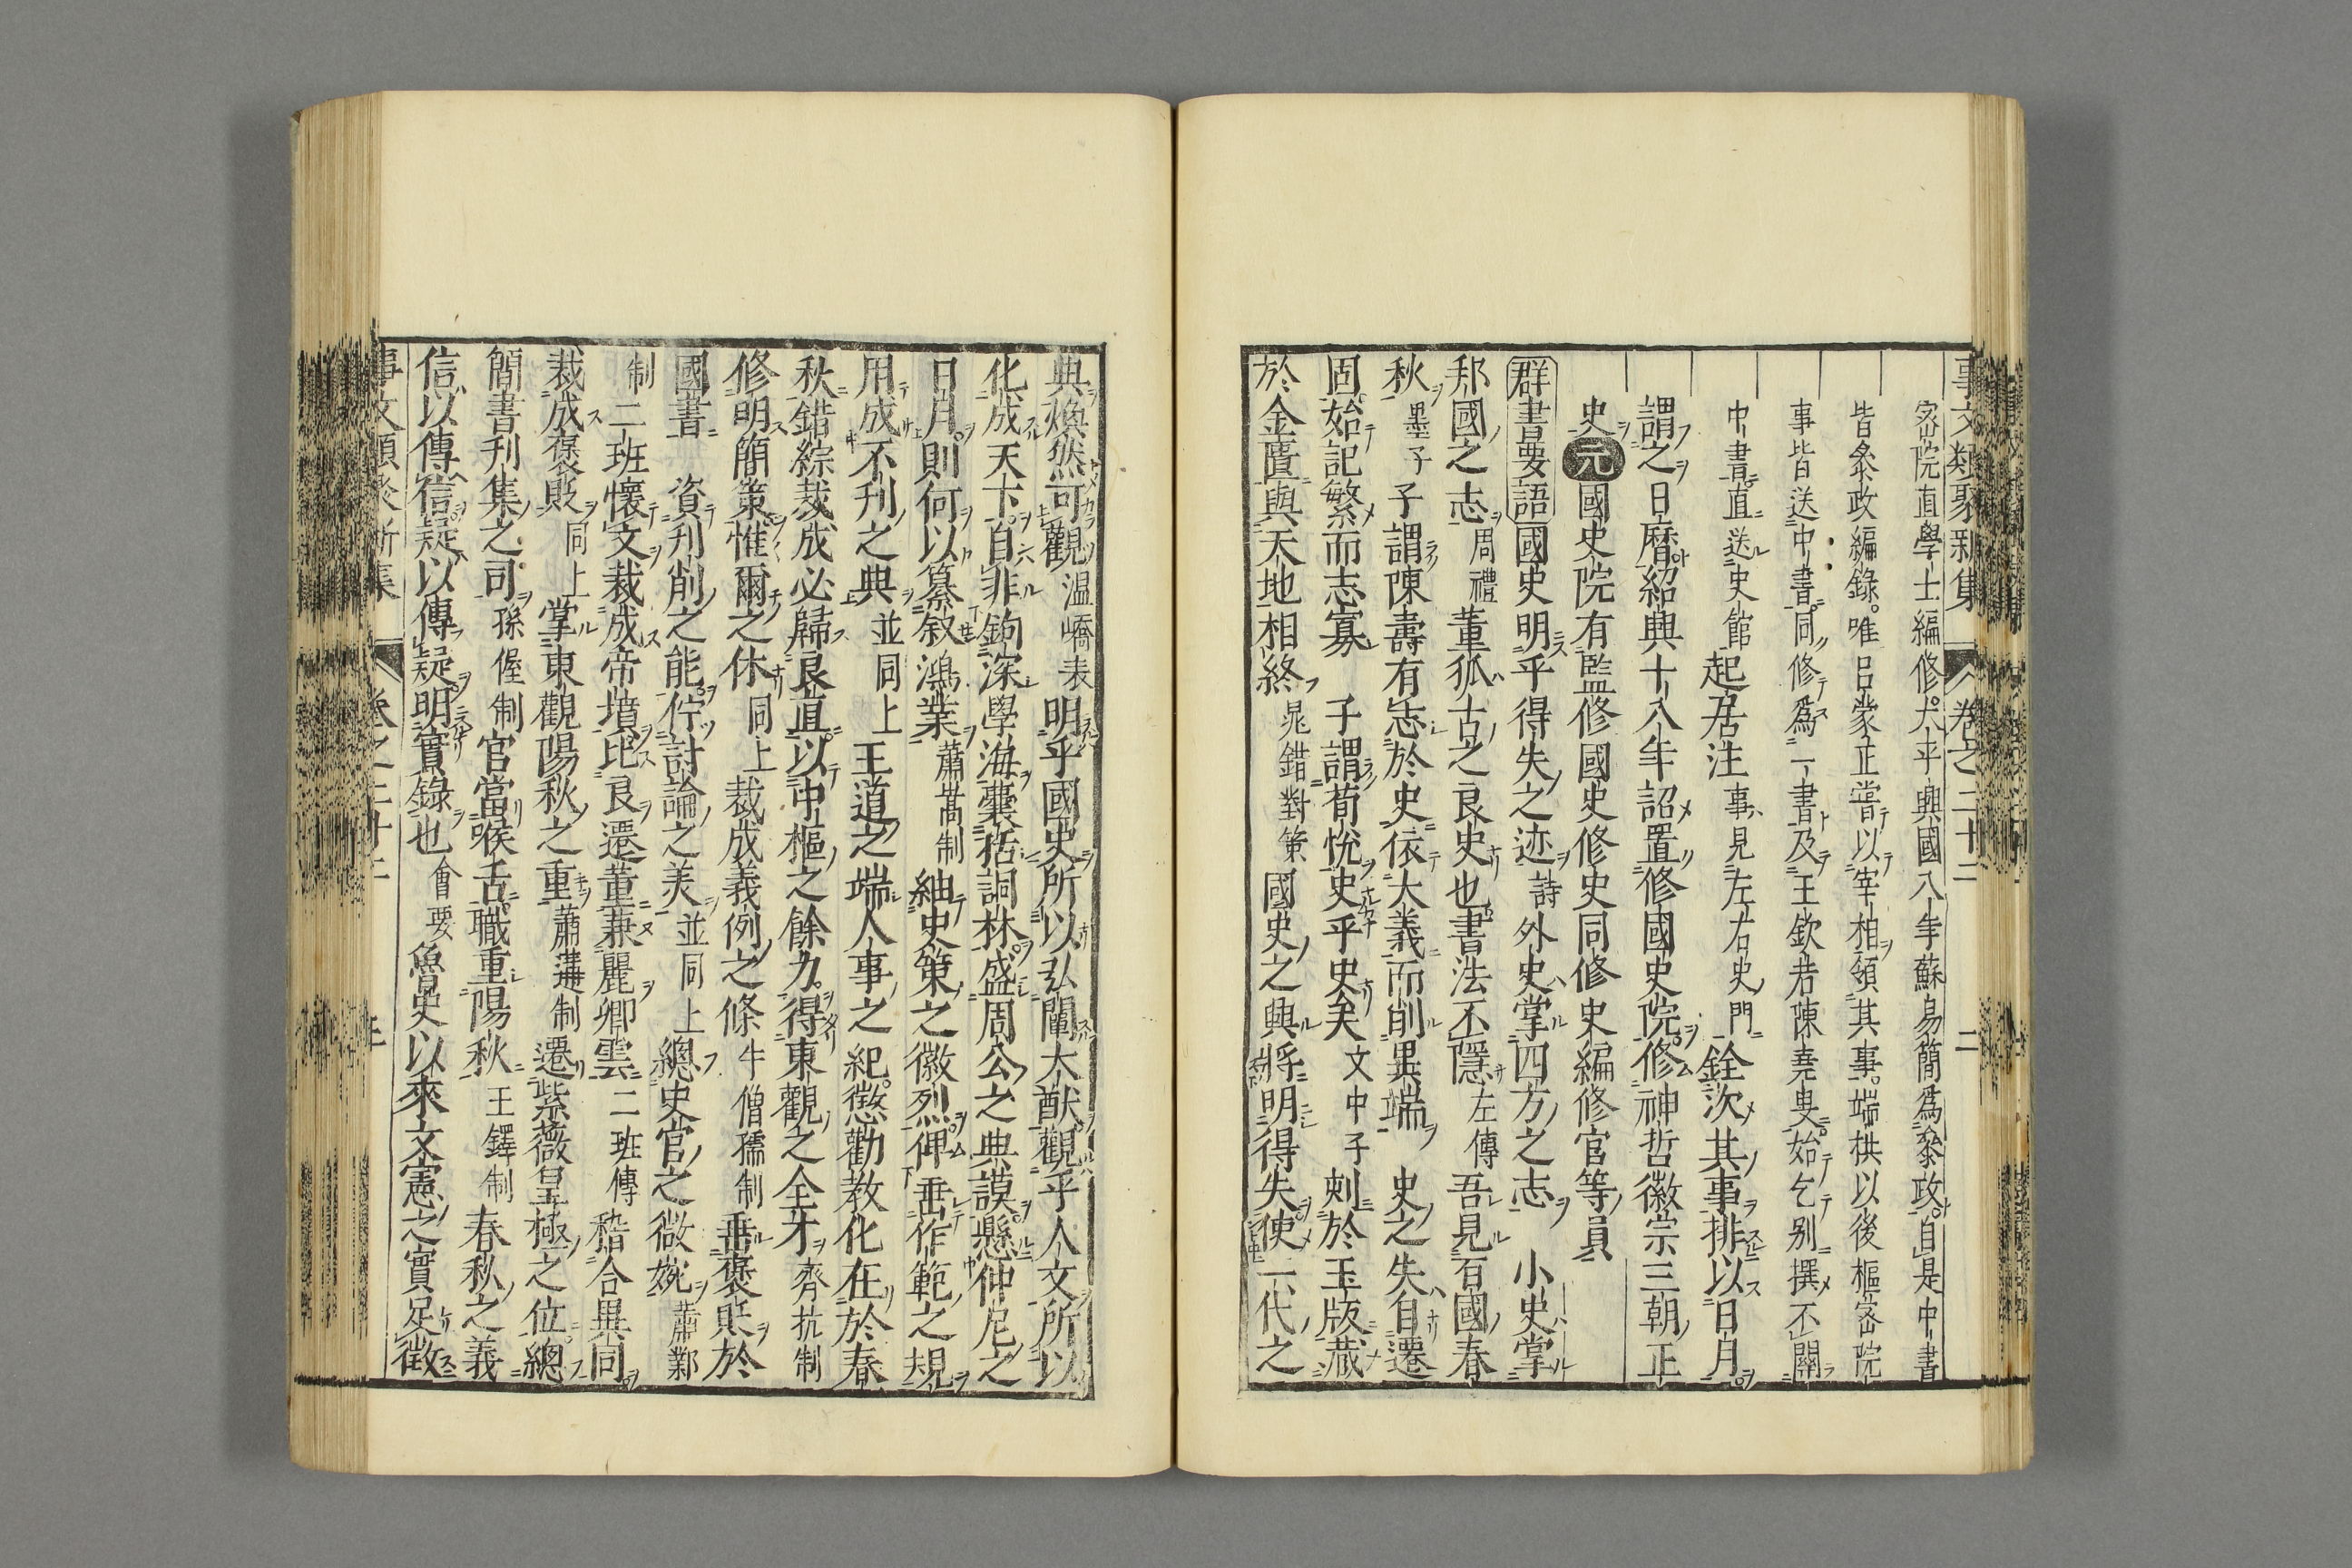 事文類聚新集 卷之二十二 二
宻院直學士編修太平興國八年蘇易簡爲叅政自是中書
皆叅政編錄唯呂蒙正嘗以宰相領其事端拱以後樞宻院
事皆送中書同修爲一書及王欽若陳堯叟始乞别撰不關
中書直送史館起居注事見左右史門銓次其事排以日月
謂之日曆紹興十八年詔置修國史院修神哲徽宗三朝正
史元國史院有監修國史修史同修史編修官等員
群書要語國史明乎得失之迹詩外史掌四方之志 小史掌
邦國之志周禮董狐古之良史也書法不隱左傳吾見百國春
秋墨子子謂陳壽有志於史依大義而削異端 史之失自遷
固始記繁而志寡 子謂荀悅史乎史矣文中子刻於玉版藏
於金匱與天地相終晁錯對策國史之興將明得失使一代之
典煥然可觀溫嶠表明乎國史所以弘闡大猷觀乎人文所以
化成天下自非鉤深學海囊括詞林盛周公之典謨懸仲尼之
日月則何以纂叙鴻業蕭嵩制紬史策之徽烈俾垂作範之規
用成不刋之典並同上王道之端人事之紀懲勸教化在於春
秋錯綜裁成必歸良直以中樞之餘力得東觀之全才齊抗制
修明簡策惟爾之休同上裁成義例之條牛僧孺制垂褒貶於
國書 資刋削之能佇討論之美並同上總史官之微婉蕭鄴
制二班懷文裁成帝墳比良遷董兼麗卿雲二班傳稽合異同
裁成褒貶同上掌東觀陽秋之重蕭遘制遷紫薇皇極之位總
簡書刋集之司孫偓制官當喉舌職重陽秋王鐸制春秋之義
信以傳信疑以傳疑明實錄也會要魯史以來文憲之實足徵
事文類聚新集 卷之二十二